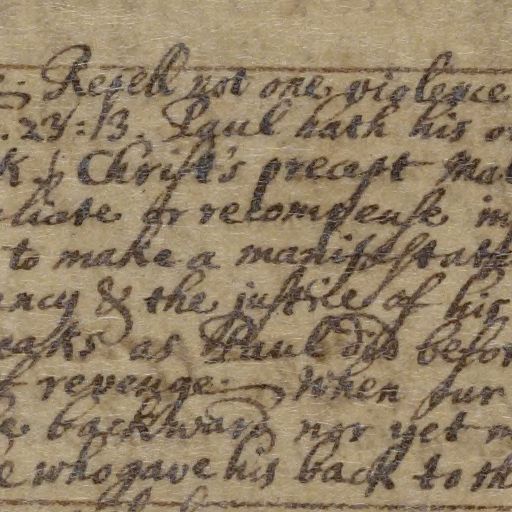 Repell not one violence
. 23:/3. Paul hath his
Christ's precept Mat
liate or recompense in
to make a manifestati
ency & the justice of his
eaks as Paul did befor
f revenge. When fur
e backward nor yet
e who gave his back to th